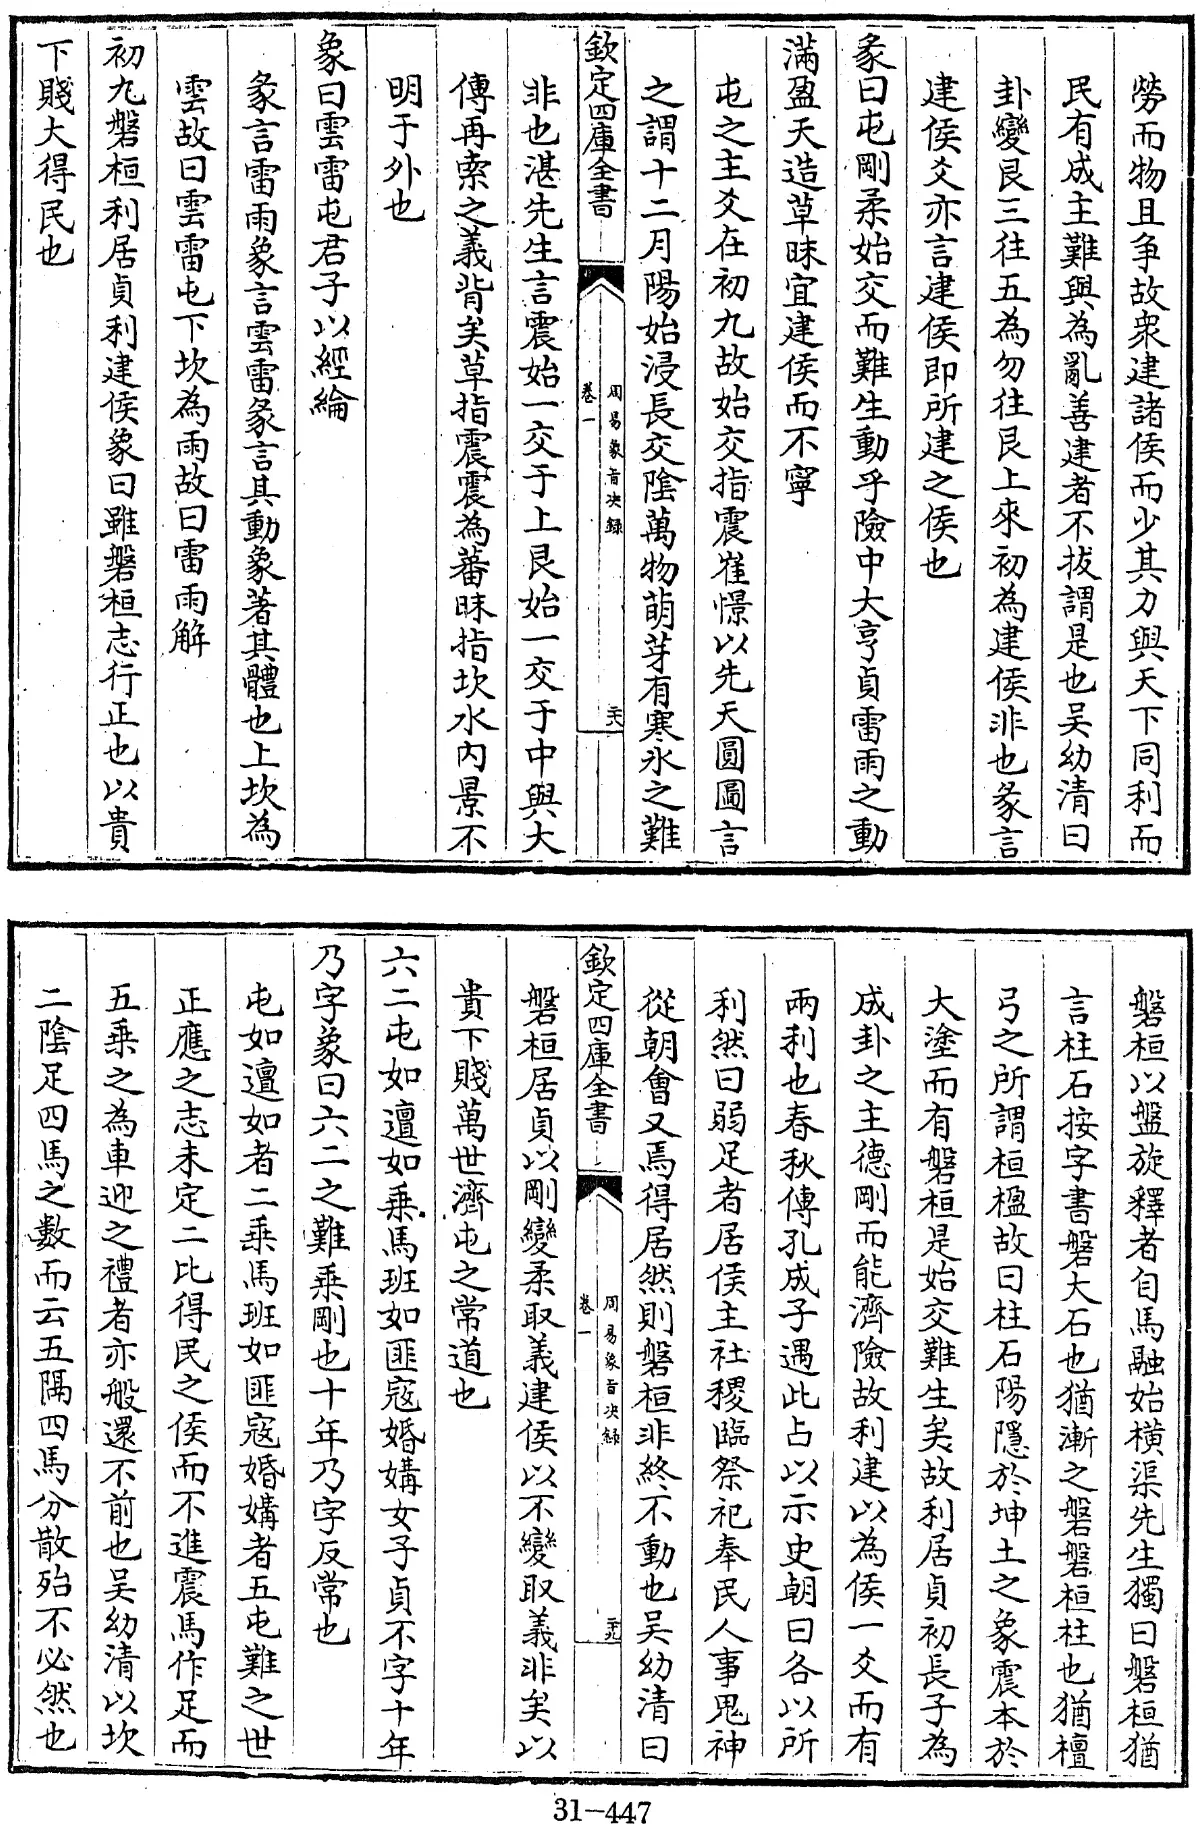 勞而物且爭故衆建諸侯而少其力與天下同利而
民有成主難與為亂善建者不拔謂是也吴幼清曰
卦變艮三往五為勿往艮上來初為建侯非也彖言
建侯爻亦言建侯即所建之侯也
彖曰屯剛柔始交而難生動乎險中大亨貞雷雨之動
滿盈天造草昧宜建侯而不寧
屯之主爻在初九故始交指震崔憬以先天圓圖言
之謂十二月陽始浸長交隂萬物萌芽有寒氷之難
欽定四庫全書
周易象旨决録
卷一
二六
非也湛先生言震始一交于上艮始一交于中與大
傳再索之義背矣草指震震為蕃昧指坎水内景不
明于外也
象曰雲雷屯君子以經綸
彖言雷雨象言雲雷彖言其動象著其體也上坎為
雲故曰雲雷屯下坎為雨故曰雷雨解
初九磐桓利居貞利建侯象曰雖磐桓志行正也以貴
下賤大得民也
磐桓以盤旋釋者自馬融始橫渠先生獨曰磐桓猶
言柱石按字書磐大石也猶漸之磐磐桓柱也猶檀
弓之所謂桓楹故曰柱石陽隱於坤土之象震本於
大塗而有磐桓是始交難生矣故利居貞初長子為
成卦之主德剛而能濟險故利建以為侯一爻而有
兩利也春秋傳孔成子遇此占以示史朝曰各以所
利然曰弱足者居侯主社稷臨祭祀奉民人事鬼神
從朝會又焉得居然則磐桓非終不動也吴幼清曰
欽定四庫全書
周易象旨决録
卷一
二九
磐桓居貞以剛變柔取義建侯以不變取義非矣以
貴下賤萬世濟屯之常道也
六二屯如邅如乗馬班如匪寇婚媾女子貞不字十年
乃字象曰六二之難乗剛也十年乃字反常也
屯如邅如者二乗馬班如匪寇婚媾者五屯難之世
正應之志未定二比得民之侯而不進震馬作足而
五乗之為車迎之禮者亦般還不前也吴幼清以坎
二陰足四馬之數而云五隔四馬分散殆不必然也
31-447